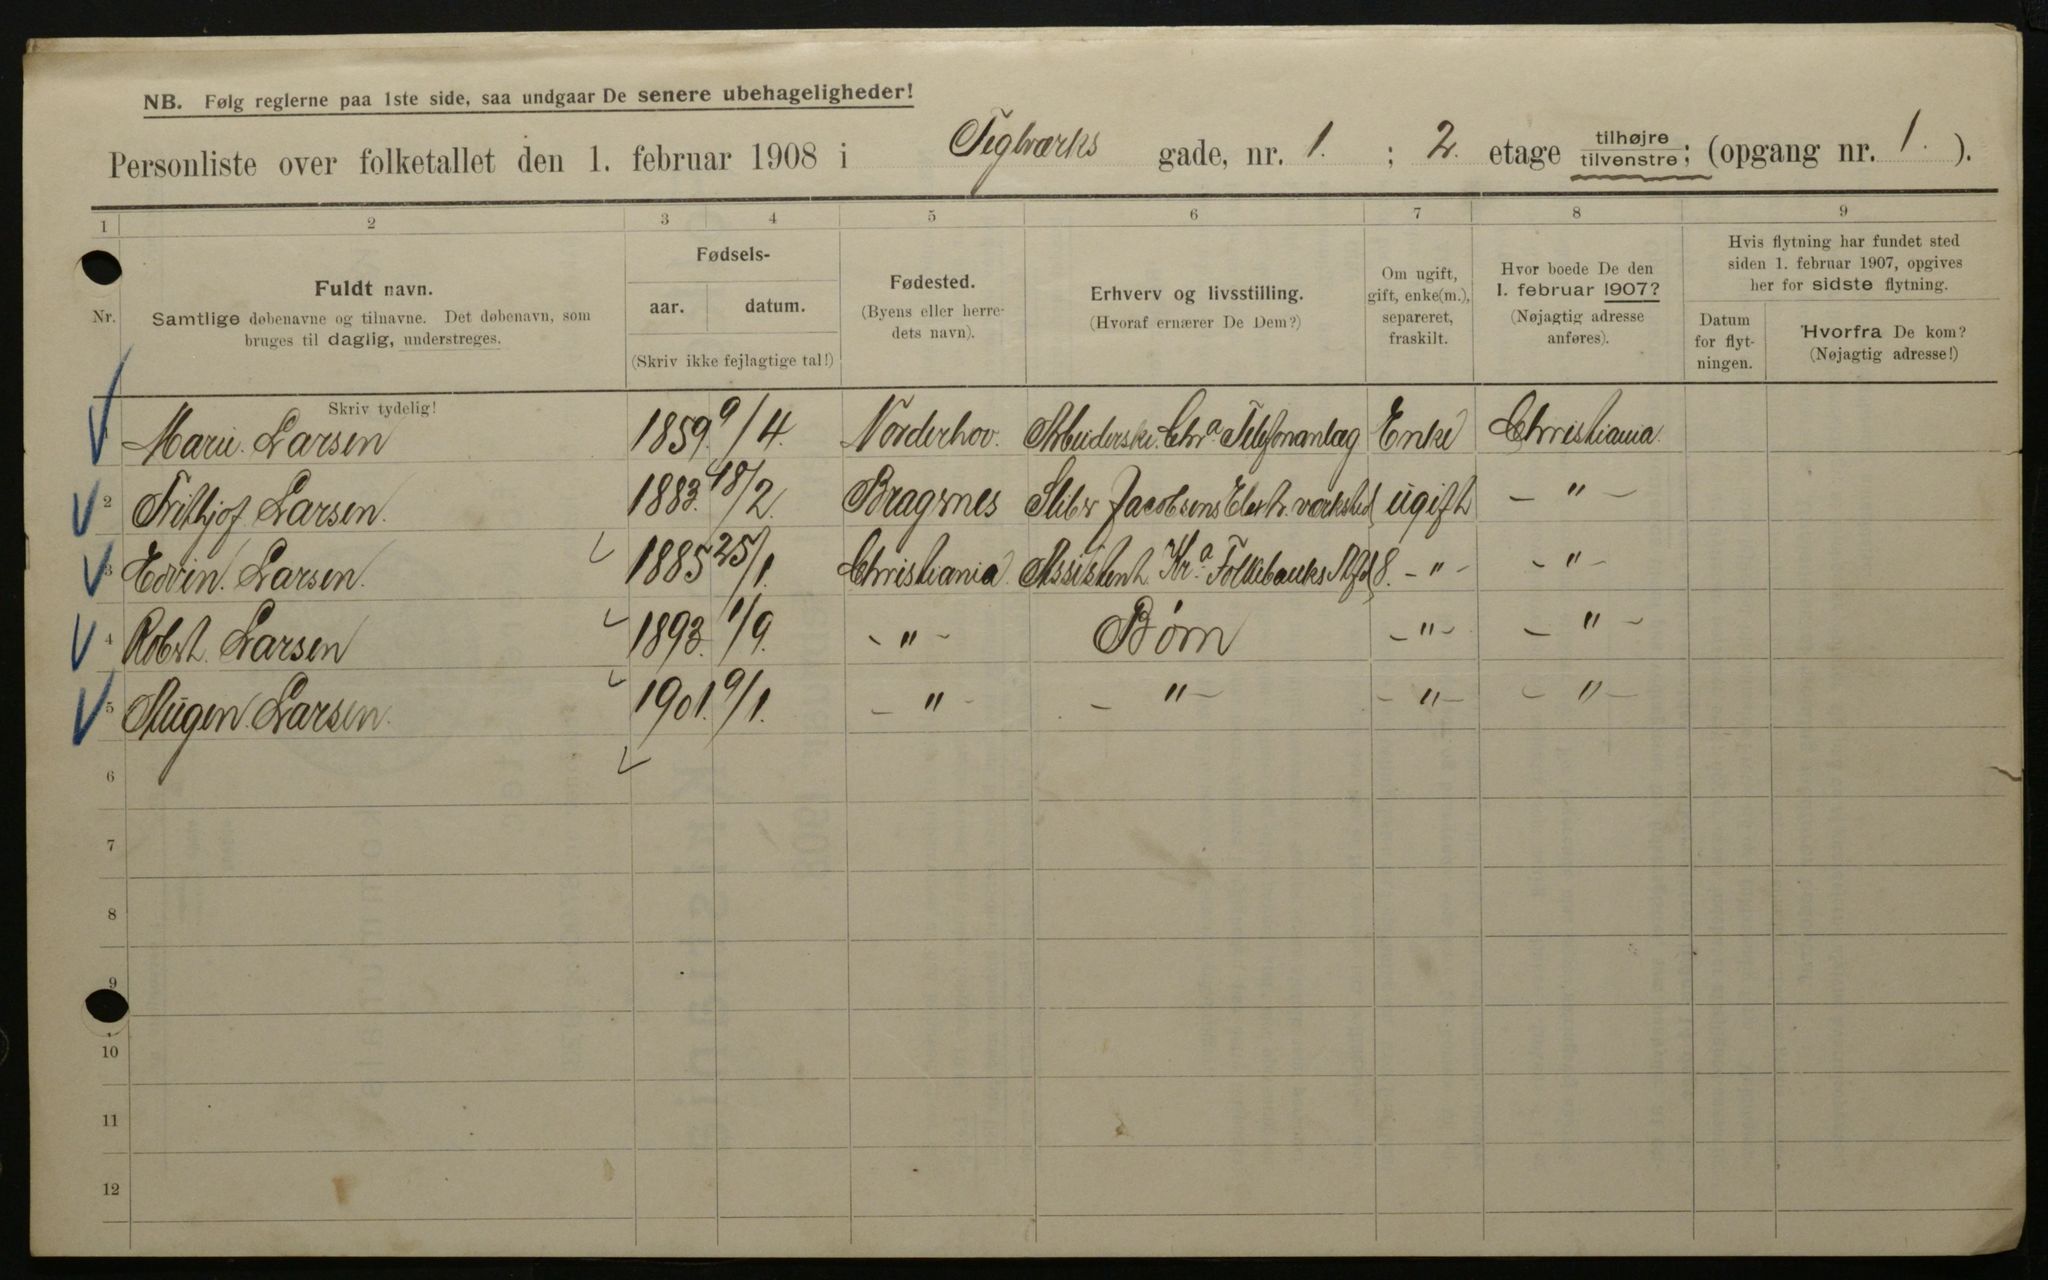 NB. Følg reglerne paa 1ste side, saa undgaar De senere ubehageligheder!
Personliste over folketallet den 1. februar 1908 i Teglværks gade, nr. 1. ; 2. etage tilhøjre tilvenstre; (opgang nr. 1. ).
1 2 3 4 5 6 7 8 9
Nr.
Fuldt navn.
Samtlige døbenavne og tilnavne. Det døbenavn, som
bruges til daglig, understreges.
Skriv tydelig!
Fødsels-
aar. datum.
(Skriv ikke fejlagtige tal!)
Fødested.
(Byens eller herre-
dets navn).
Erhverv og livsstilling.
(Hvoraf ernærer De Dem?)
Om ugift,
gift, enke(m.),
separeret,
fraskilt.
Hvor boede De den
1. februar 1907?
(Nøjagtig adresse
anføres).
Hvis flytning har fundet sted
siden 1. februar 1907, opgives
her for sidste flytning.
Datum
for flyt-
ningen.
Hvorfra De kom?
(Nøjagtig adresse!)
Marie. Larsen 1859. 9/4. Norderhov. Arbeiderske. Chr.a Telefonanlæg Enke Christiania.
2 Frithjof Larsen. 1883. 18/2. Bragernes Sliber Jacobsens Elektr. værksted ugift — " —
3 Edvin. Larsen. 1885 25/1. Christiania Assistent Kr.a Folkebanks Afd 8. — " — — " —
4 Robert. Larsen 1893. 1/9. — " — Børn — " — — " —
5 Augen. Larsen. 1901. 9/1. — " — — " — — " — — " —
6
7
8
9
10
11
12